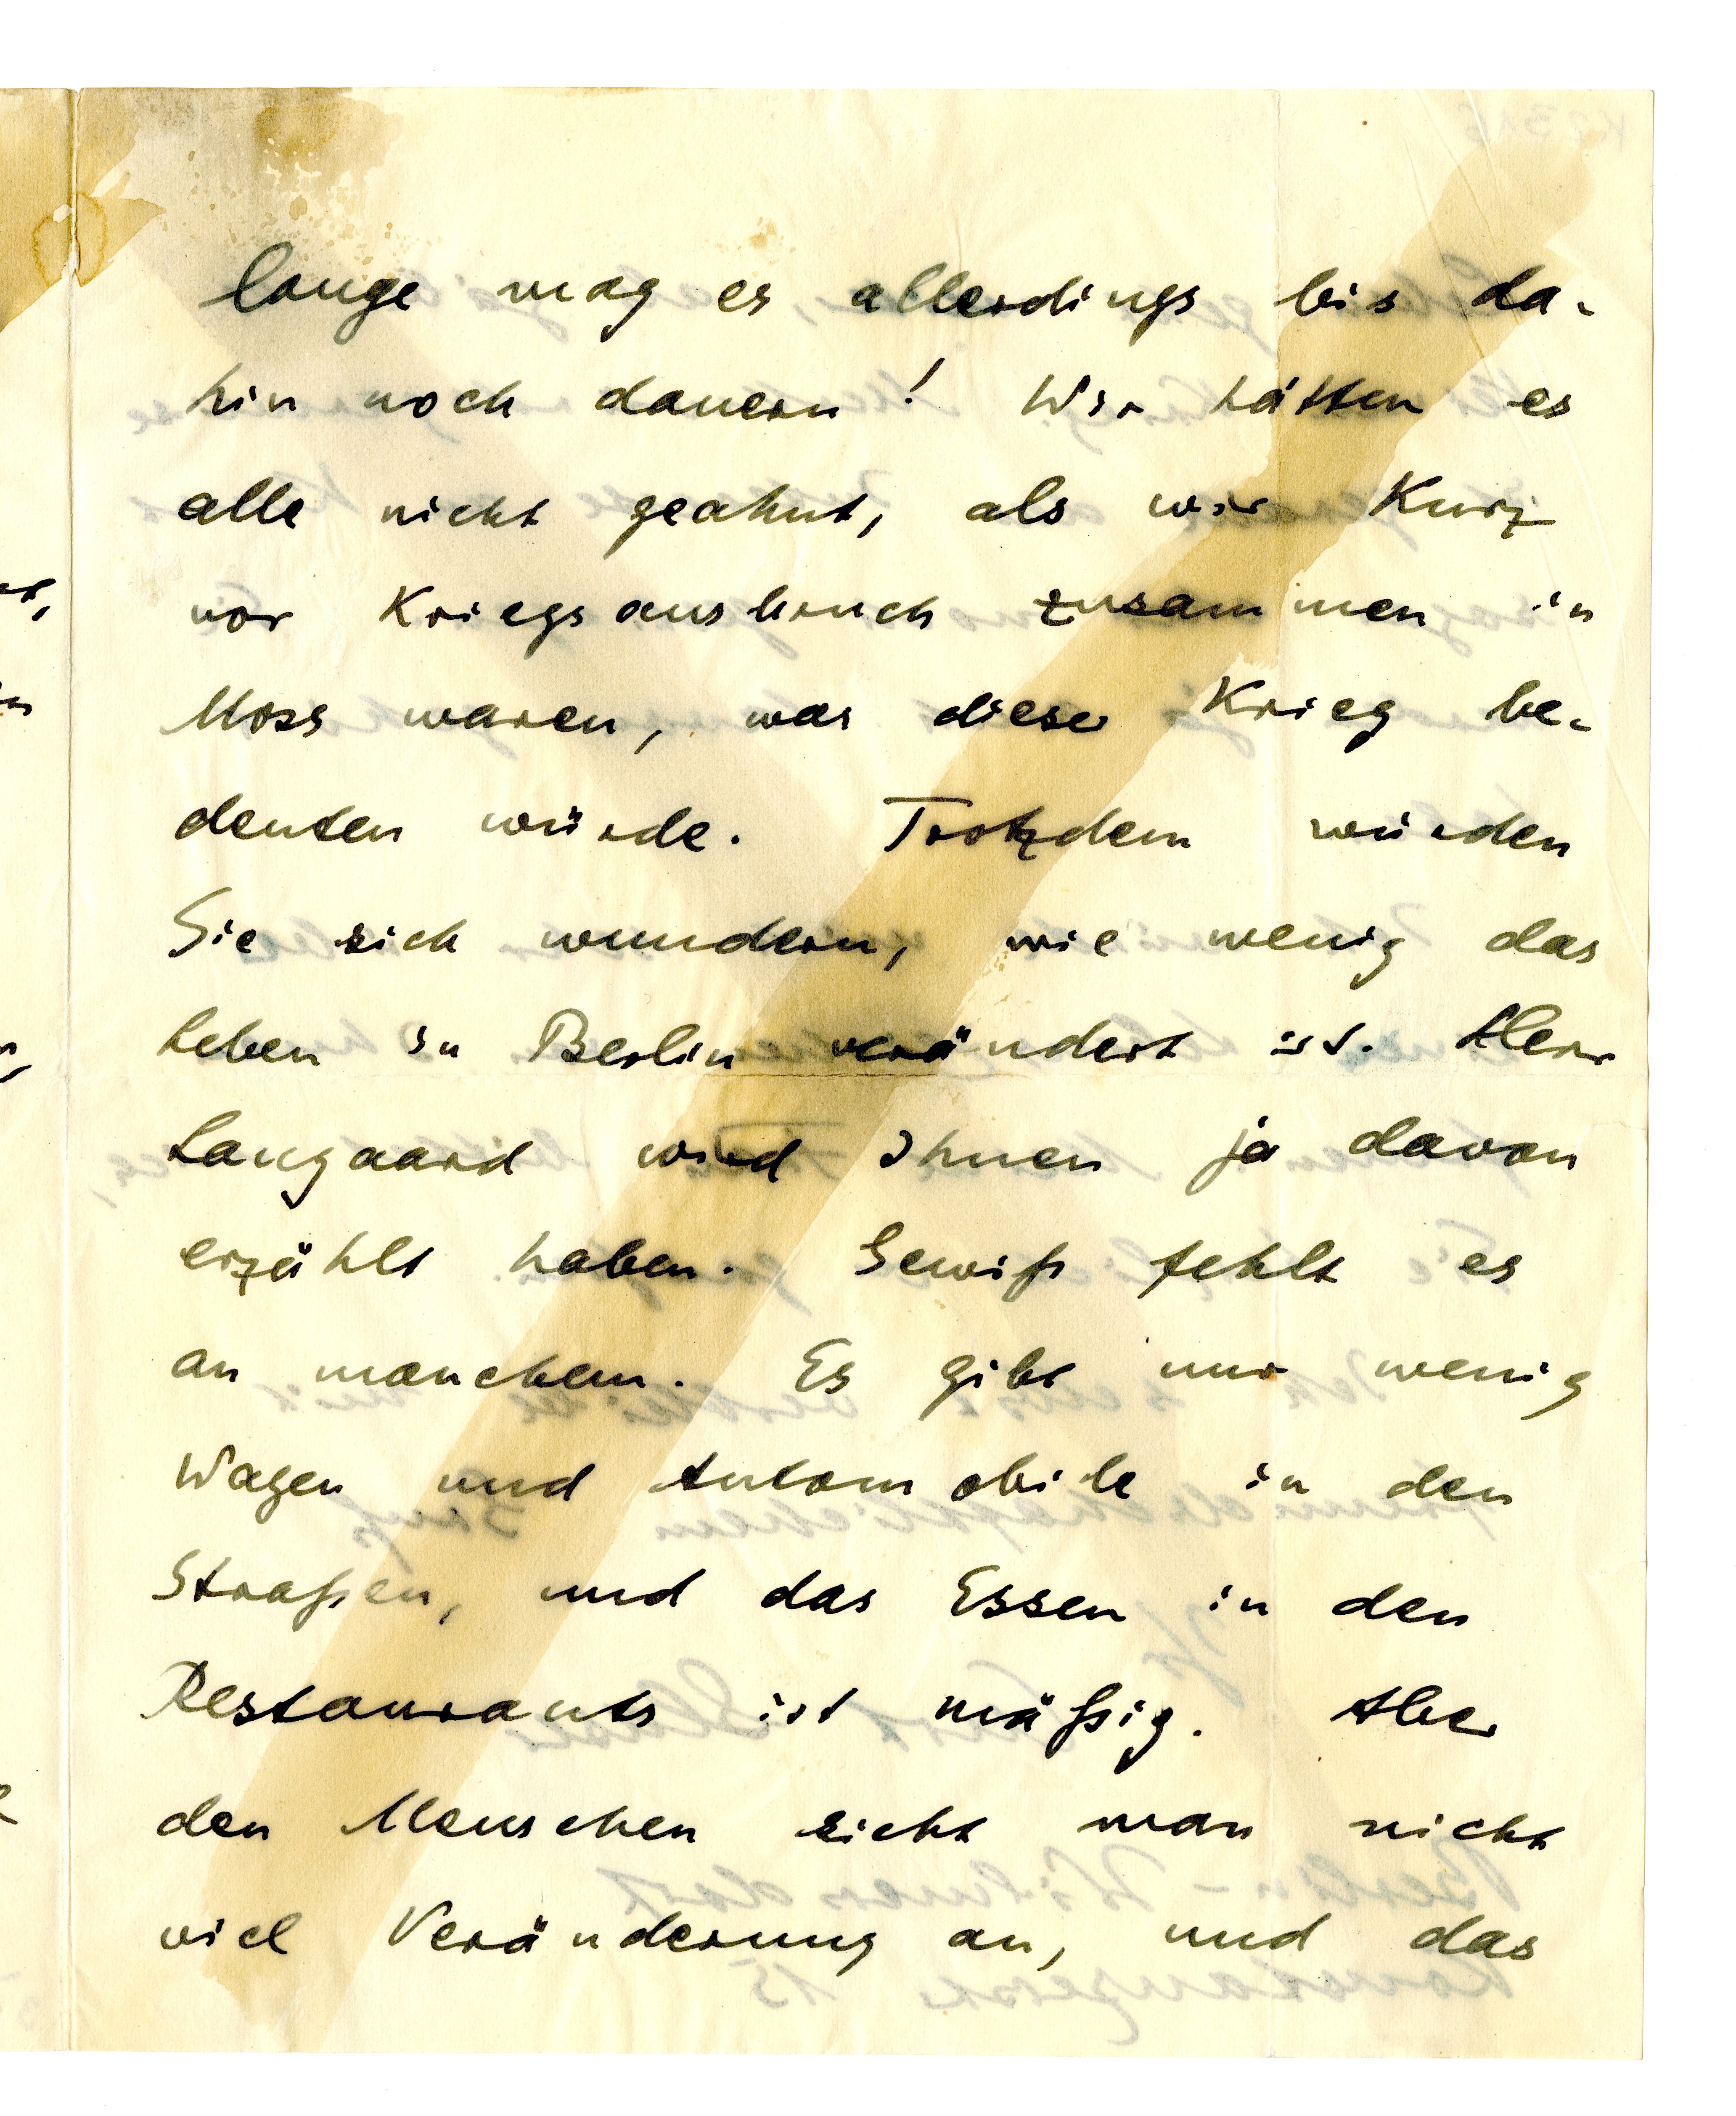 lange mag es allerdings bis da-
hin noch dauern! Wir hätten es
alle nicht geahnt, als wir kurz
vor Kriegsausbruch zusammen in
Moss waren, was dieser Krieg be-
deuten würde. Trotzdem würden
Sie sich wundern, wie wenig das
Leben in Berlin verändert ist. Herr
Langaard wird Ihnen ja davon
erzählt haben. Gewiß fehlt es
an manchem. Es gibt nur wenig
Wagen und Automobile in den
Straßen, und das Essen in den
Restaurants ist mäßig. Aber
den Menschen sieht man nicht
viel Veränderung an, und das